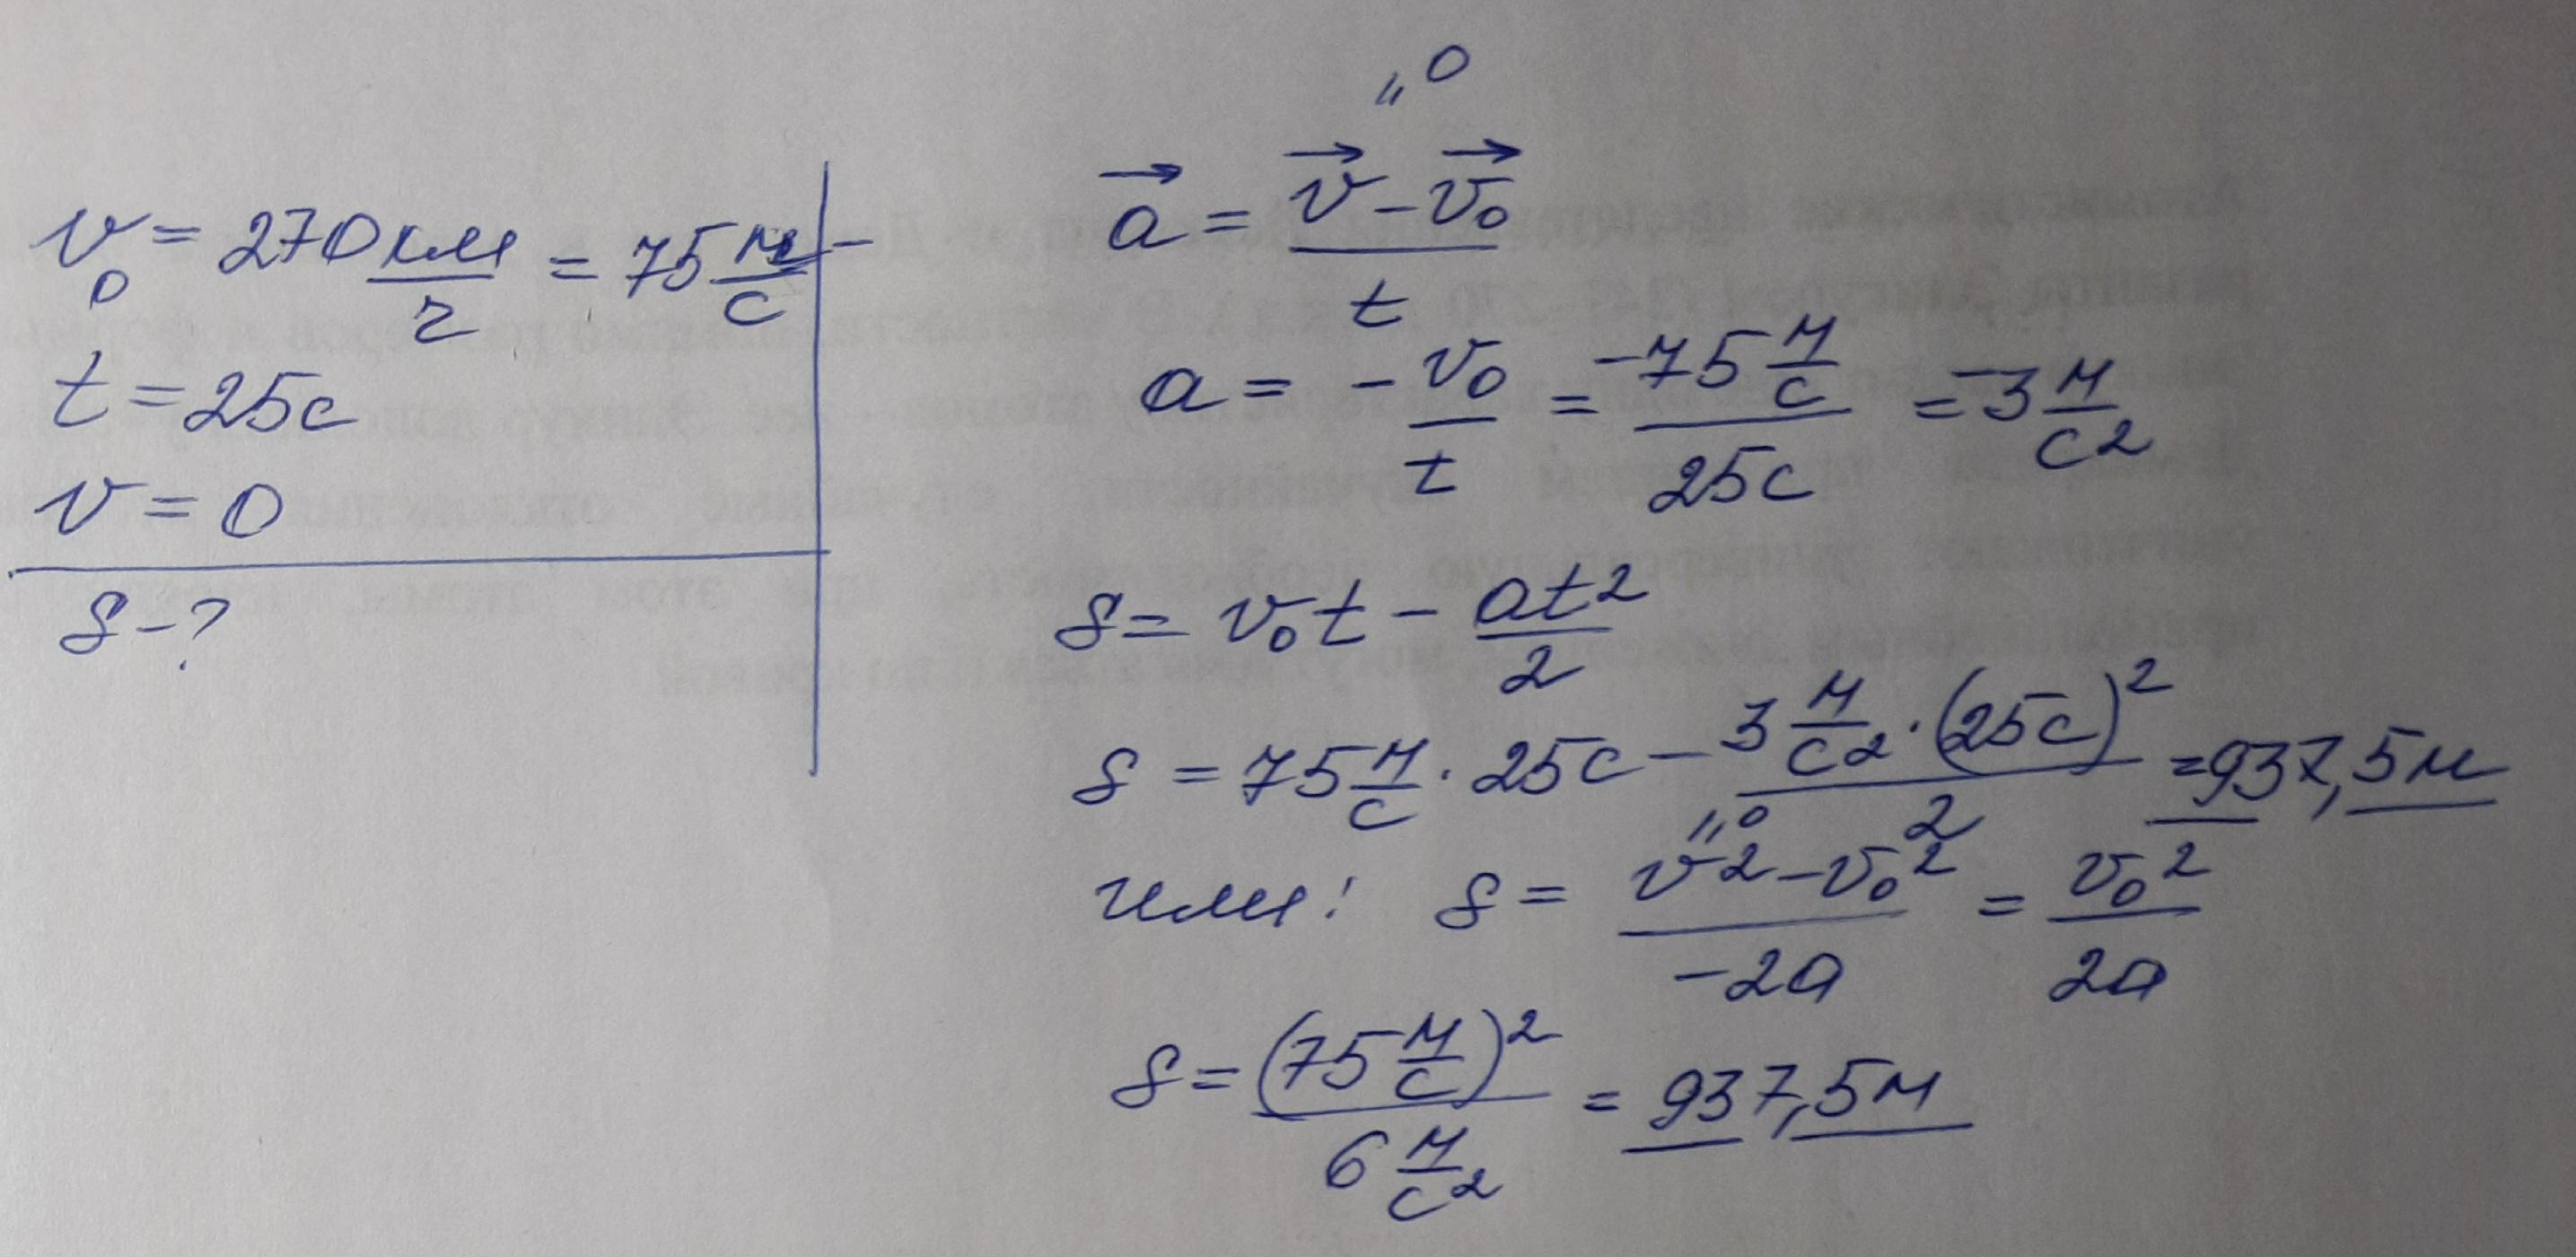 v₀ = 270 км/г = 75 м/с
t = 25с
v = 0
s - ?
"0
a⃗ = (v⃗ - v⃗₀)/t
a = - v₀/t = -75 м/с / 25с = -3 м/с²
s = v₀t - at²/2
s = 75 м/с · 25с - 3 м/с² · (25с)² / 2 = 937,5м
"0
или: s = (v² - v₀²)/-2a = v₀²/2a
s = (75 м/с)² / 6 м/с² = 937,5м